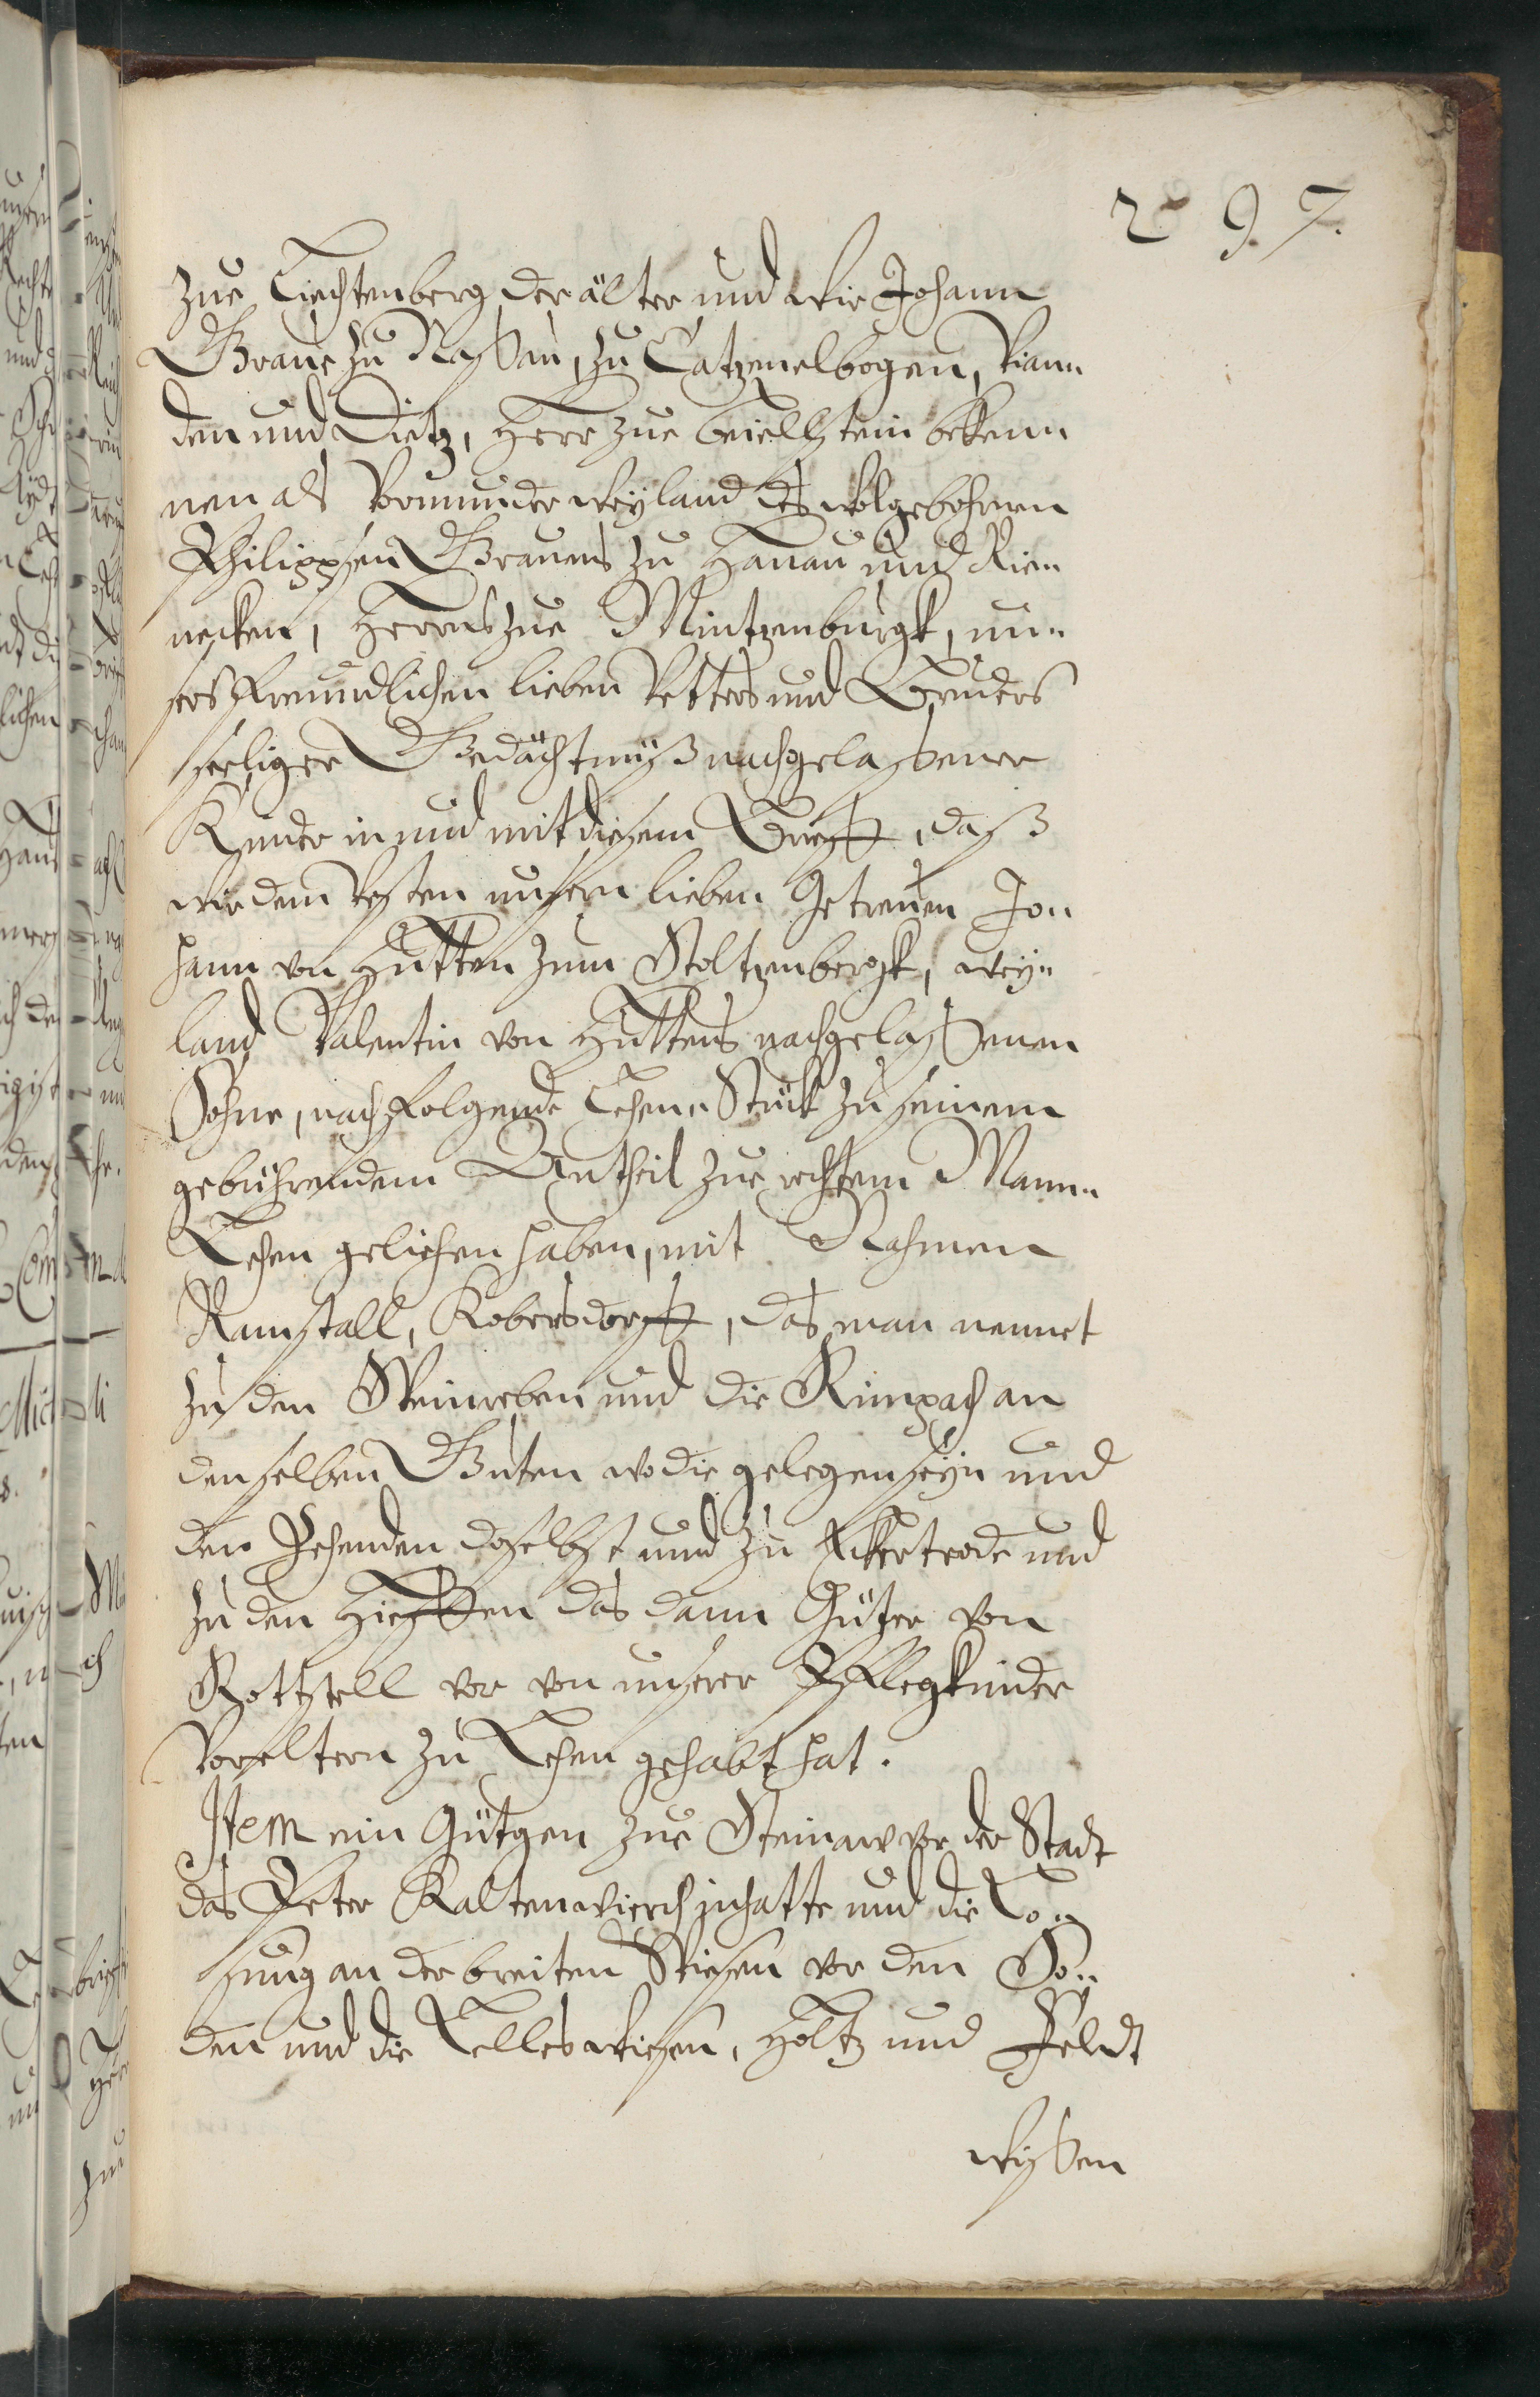 297.
zue Liechtenberg der älter und wir Johann
Graue zu Nassau, zu Catzenelbogen, Vian„
den und Dietz, Herr zue Beiellstein bekenn
nen als Vormunder weyland des wolgebohrnen
Philippsen Grauens zu Hanau und Rie„
necken, Herrns zue Mintzenburgk, un„
sers freundlichen lieben Vetters und Bruders
seeliger Gedächtnuß nachgelassener
Kinder in und mit diesem Brieff, daß
wir dem Vesten unsern lieben Getreuen Jo„
hann von Hutten zum Stoltzenbergk, wey„
land Valentin von Huttens nachgelassenen
Sohne, nachfolgende Lehen„ Stück zu seinem
gebührendem Antheil zue rechtem Mann„
Lehen geliehen haben, mit Nahmen
Ramstall, Kobersdorff, das man nennet
zu den Weinreben und die Rimpach an
denselben Guten wo die gelegen seyn und
den Zehenden doselbst und zu Eckertrode und
zu den Hieffen das dann Gützer von
Rottzell vor von unserer Pflegkinder
Voreltern zu Lehen gehabt hat.
Item ein Gütgen zue Steinaw vor der Stadt
das Peter Kaltenwierch jnhatte und die Lo„
sung an der breiten Wiesen vor den So„
den und die Lelleswiesen, Holtz und Feldt
wissen